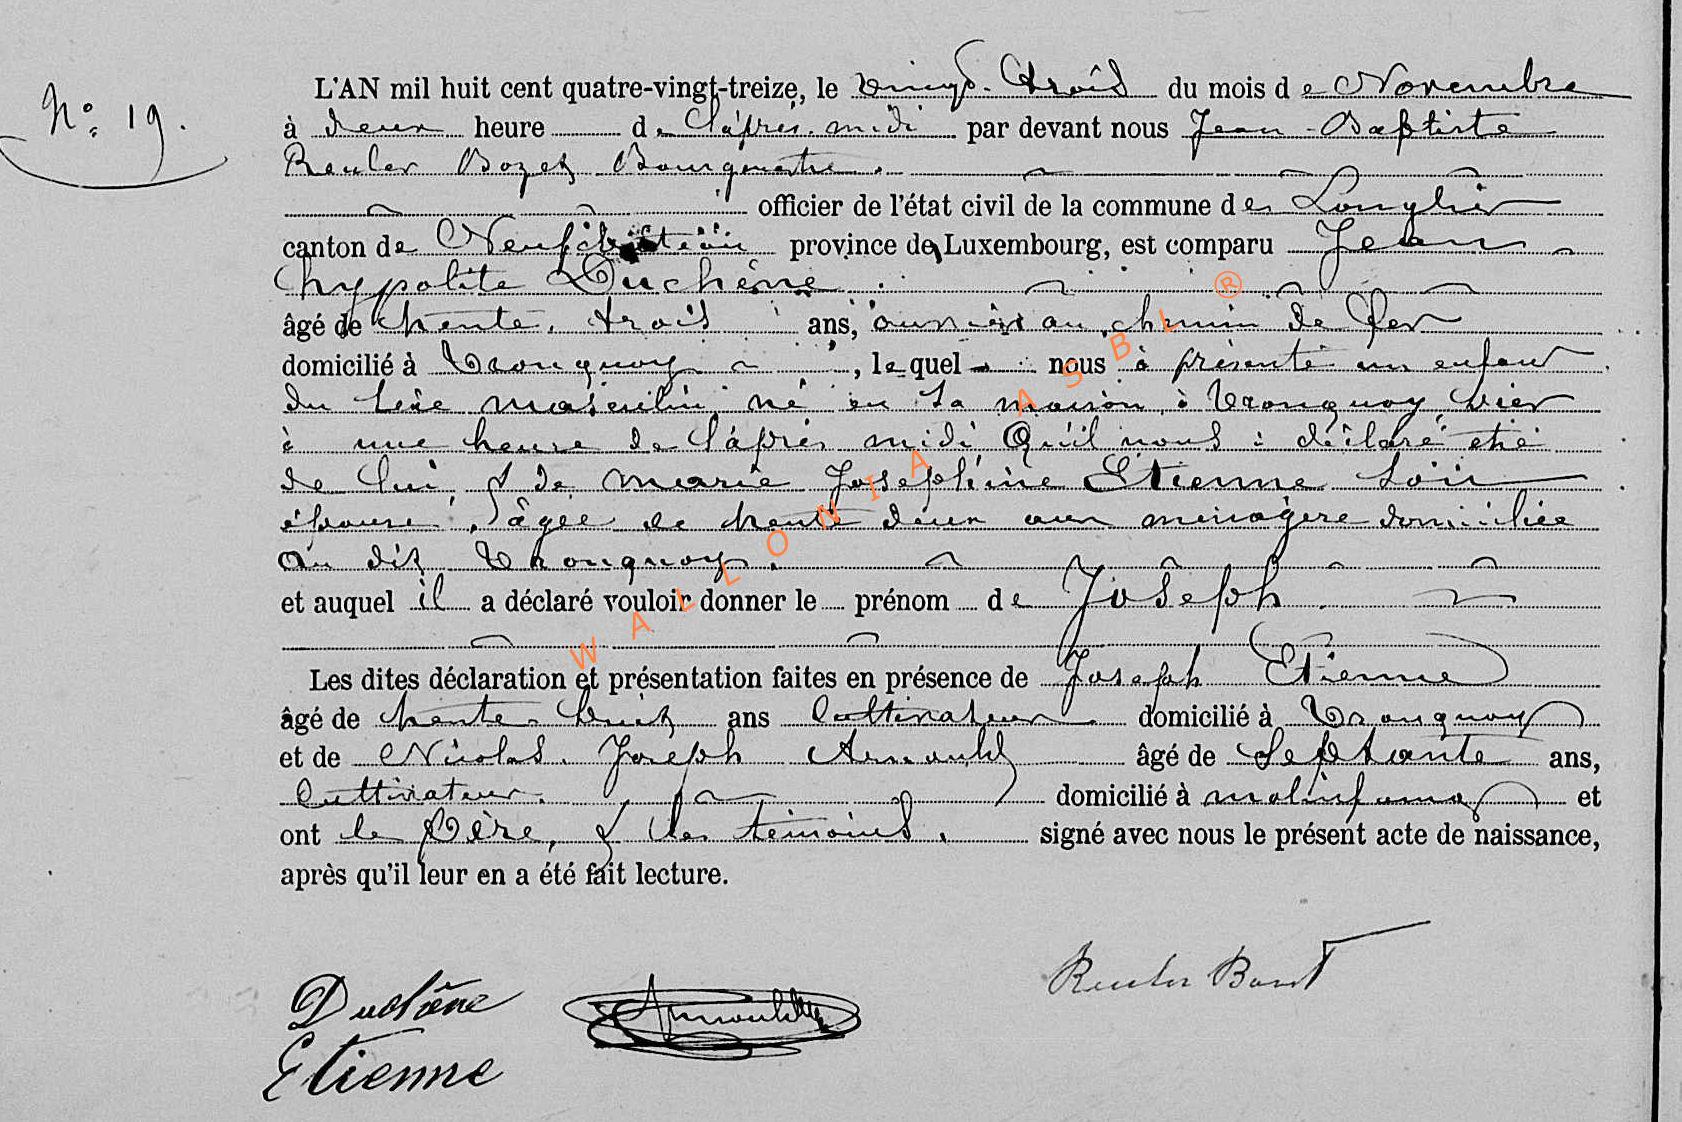 N° 19.
L'AN mil huit cent quatre-vingt-treize, le vingt-trois du mois de Novembre
à deux heure de l'après-midi par devant nous Jean-Baptiste
Reuler Bozet Bourgmestre.
officier de l'état civil de la commune de Longlier
canton de Neufchâteau province de Luxembourg, est comparu Jean
hypolite Duchêne
âgé de trente-trois ans, ouvrier au chemin de fer
domicilié à Tronquoy, lequel nous à présenté un enfant
du sexe masculin, né en sa maison à Tronquoy, hier
à une heure de l'après midi Qu'il nous à déclaré etre
de lui, & de marie Joséphine Etienne son
épouse, âgée de trente deux ans ménagère domiciliée
au dit Tronquoy.
et auquel il a déclaré vouloir donner le prénom de Joseph.
Les dites déclaration et présentation faites en présence de Joseph Etienne
âgé de trente-huit ans Cultivateur domicilié à Tronquoy
et de Nicolas Joseph Arnould âgé de Septante ans,
Cultivateur domicilié à molinfaing et
ont le Père, & les témoins. signé avec nous le présent acte de naissance,
après qu'il leur en a été fait lecture.
Duchêne
Arnould
Reuler Bozet
Etienne
WALLONIA ASBL ®